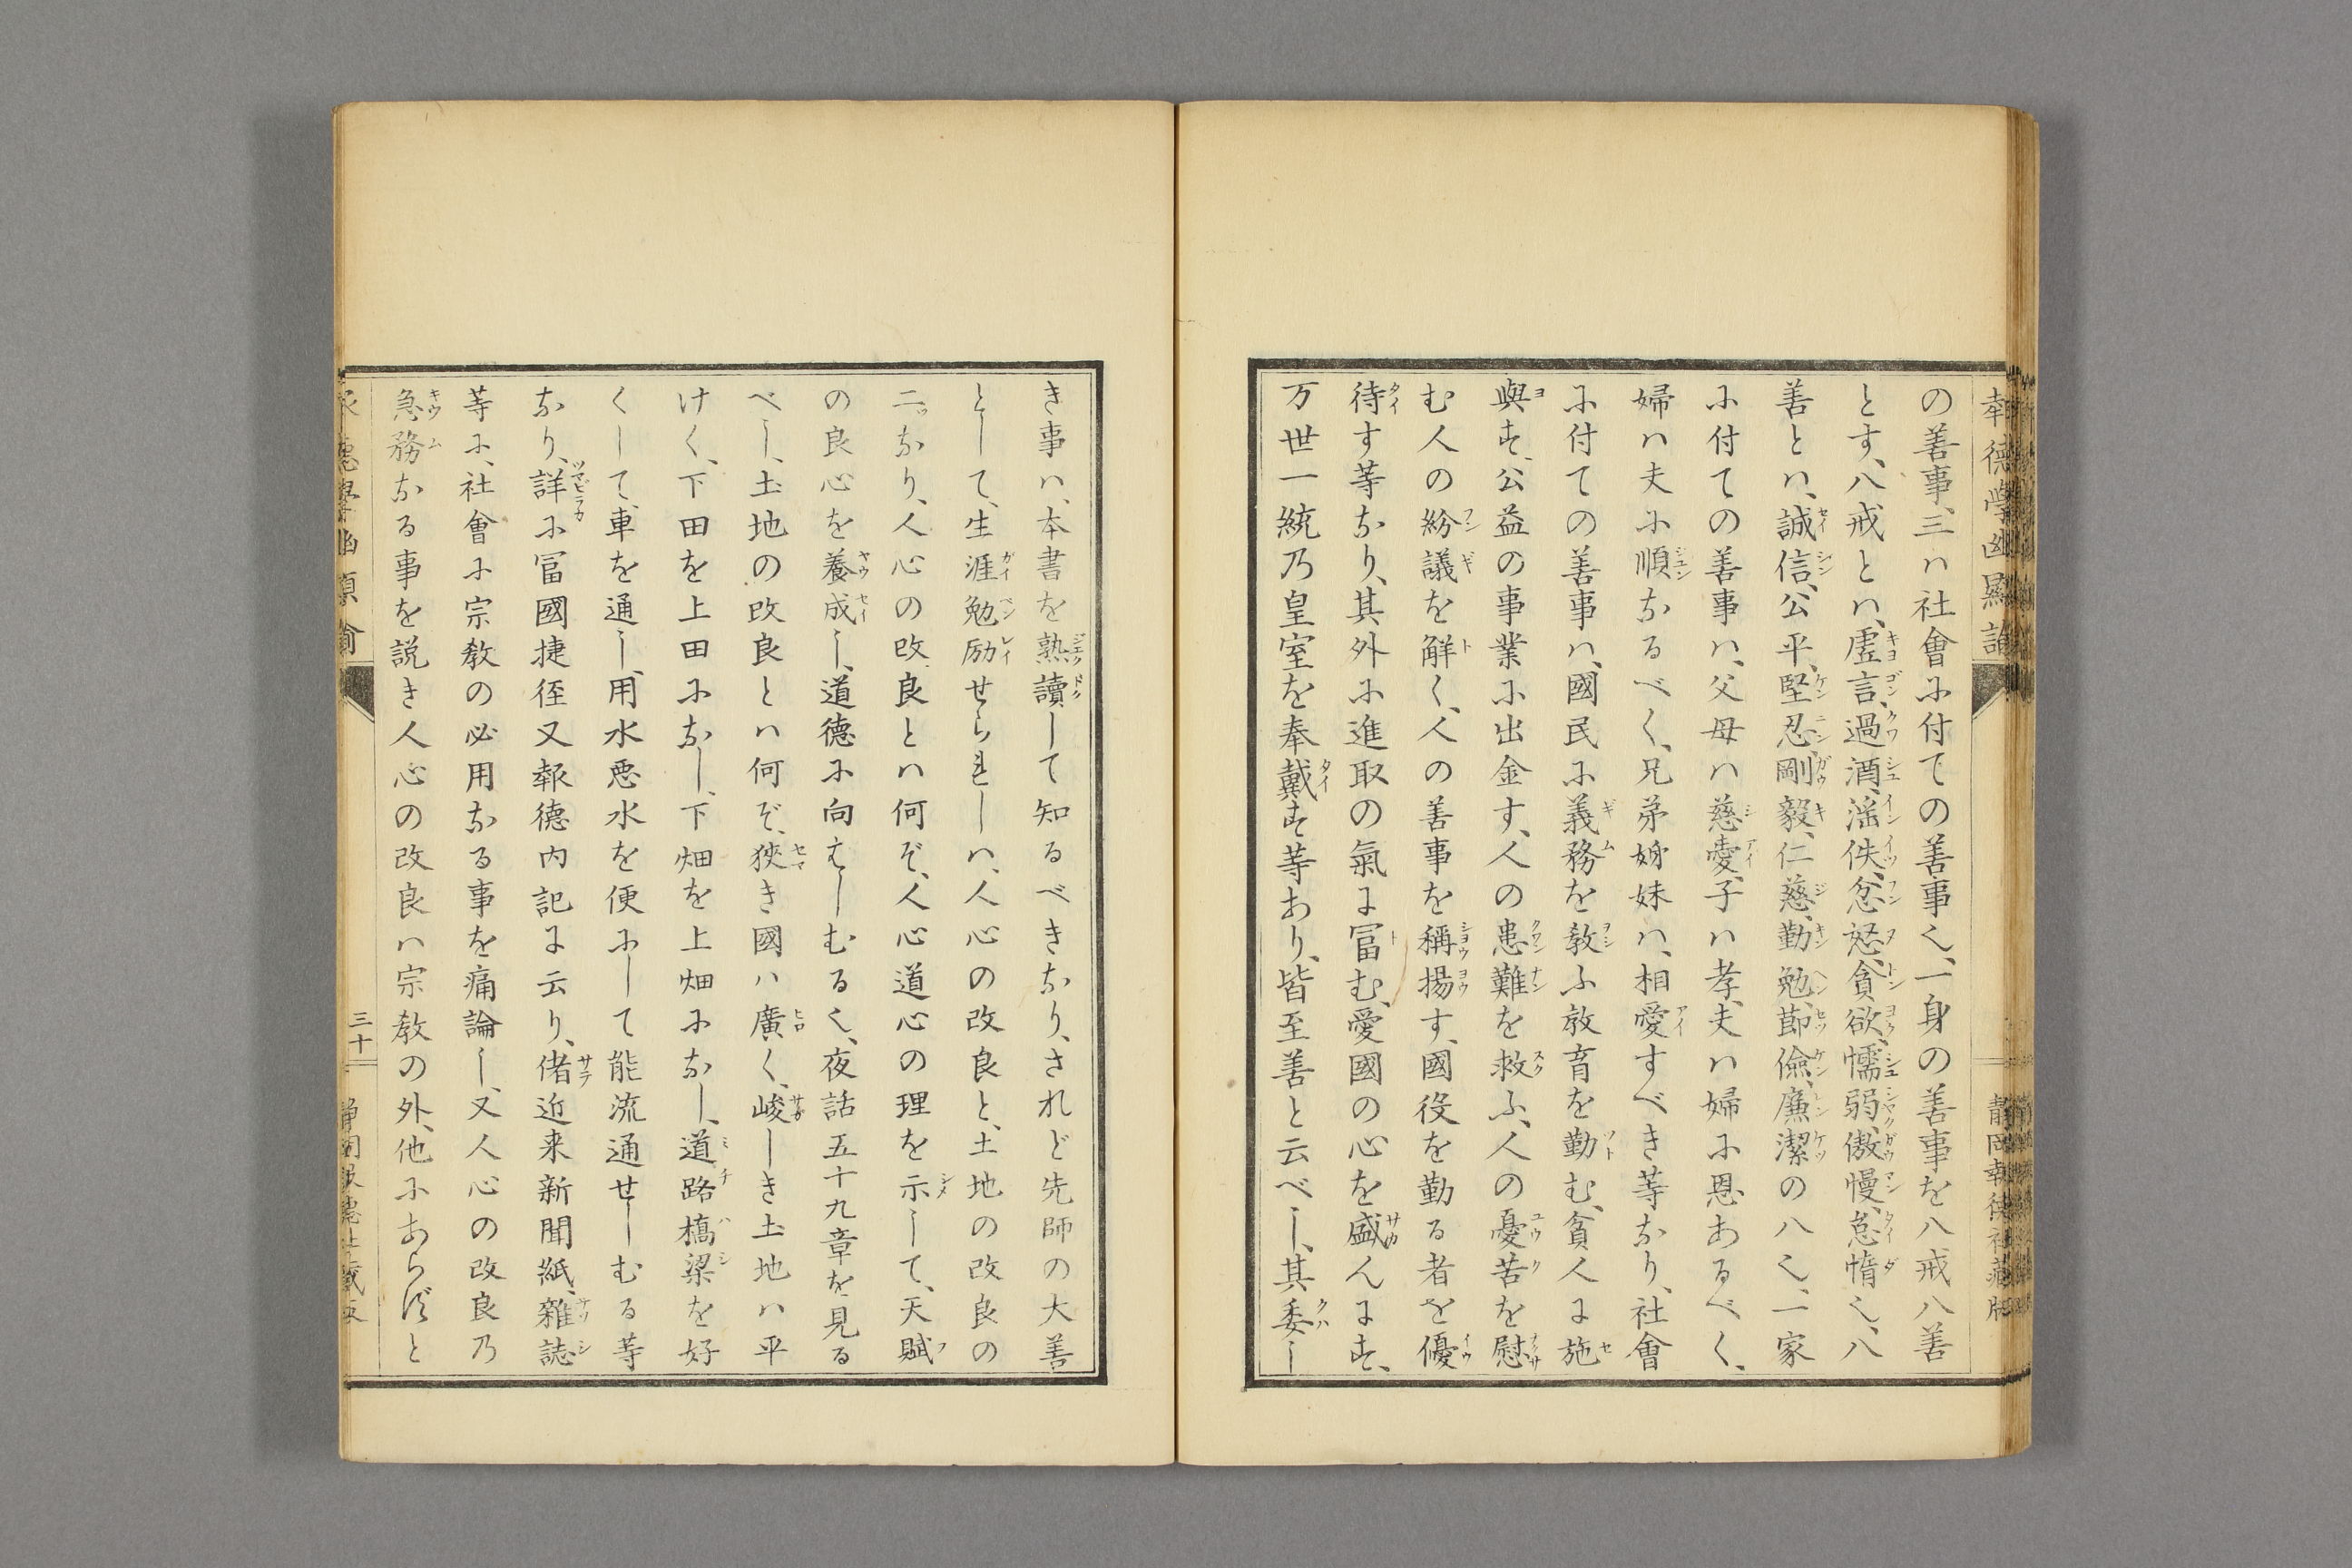 の善事、三ハ社會に付ての善事く、一身の善事を八戒八善
とす、八戒とハ、虚言、過酒、淫佚、忿怒、貪欲、懦弱、傲慢、怠惰く、八
善とハ、誠信、公平、堅忍、剛毅、仁慈、勤勉、節儉、廉潔の八く、一家
に付ての善事ハ、父母ハ慈愛、子ハ孝、夫ハ婦に恩あるべく、
婦ハ夫に順なるべく、兄弟姉妹ハ、相愛すべき等なり、社會
に付ての善事ハ、國民に義務を教ふ放育を勤む、貧人に施
與す、公益の事業に出金す、人の患難を救ふ、人の憂苦を慰
む人の紛議を解く、人の善事を稱揚す、國役を勤る者を優
待す等なり、其外に進取の氣に冨む、愛國の心を盛んにす、
万世一統乃皇室を奉戴す等あり、皆至善と云べし、其委し
き事ハ、本書を熟讀して知るべきなり、されど先師の大善
として、生涯勉励せられしハ、人心の改良と、土地の改良の
二ツなり、人心の改良とハ何ぞ、人心道心の理を示して、天賦
の良心を養成し、道德に向はしむるく、夜話五十九章を見る
べし、土地の改良とハ何ぞ、狹き國ハ廣く、峻しき土地ハ平
けく、下田を上田になし、下畑を上畑になし、道路橋梁を好
くして、車を通し、用水悪水を便にして能流通せしむる等
なり、詳に冨國捷径又報德内記に云り、偖近来新聞紙、雜誌
等に、社會に宗教の必用なる事を痛論し、又人心の改良乃
急務なる事を説き人心の改良ハ宗教の外、他にあらずと
三十